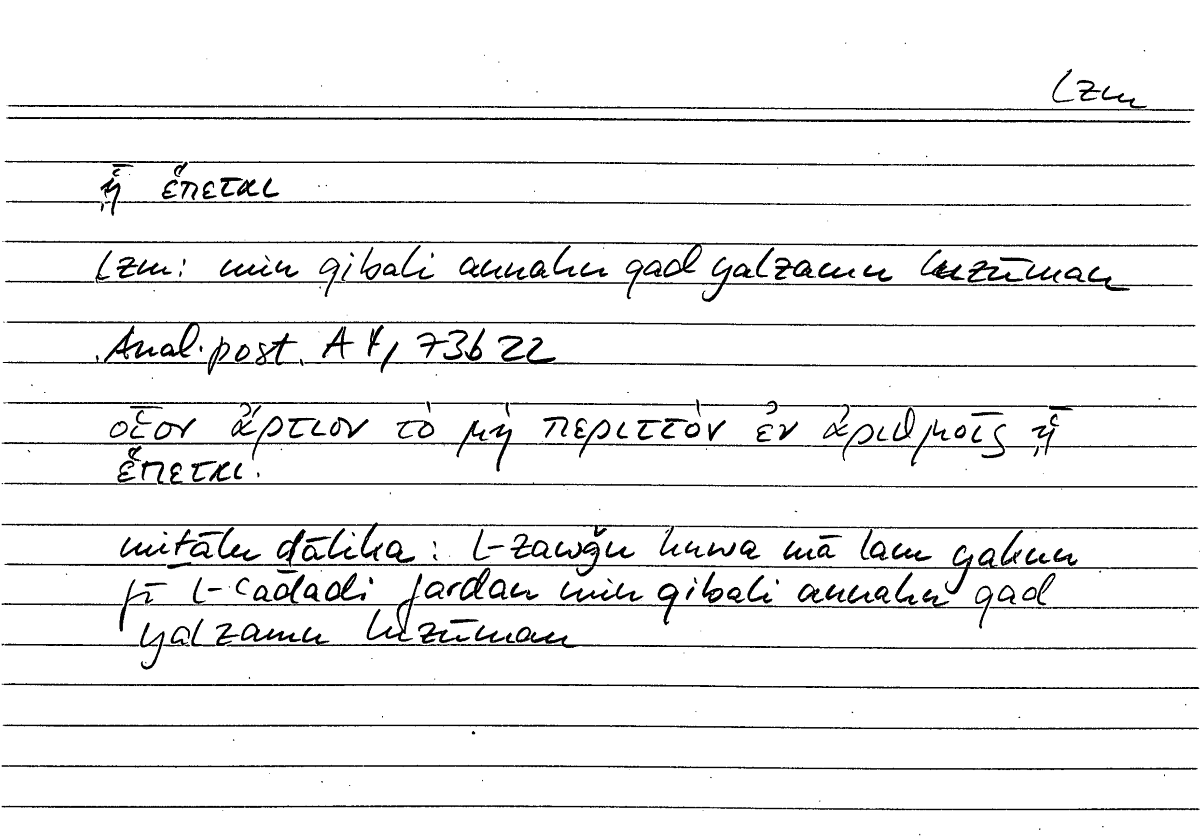 lzm
ᾗ ἕπεται
lzm: min qibali annahu qad yalzamu luzūman
Anal. post. A 4, 73b22
οἷον ἄρτιον τὸ μὴ περιττὸν ἐν ἀριθμοῖς ᾗ
ἕπεται.
miṯālu ḏālika: l-zawǧu huwa mā lam yakun
fī l-ʿadadi fardan min qibali annahu qad
yalzamu luzūman